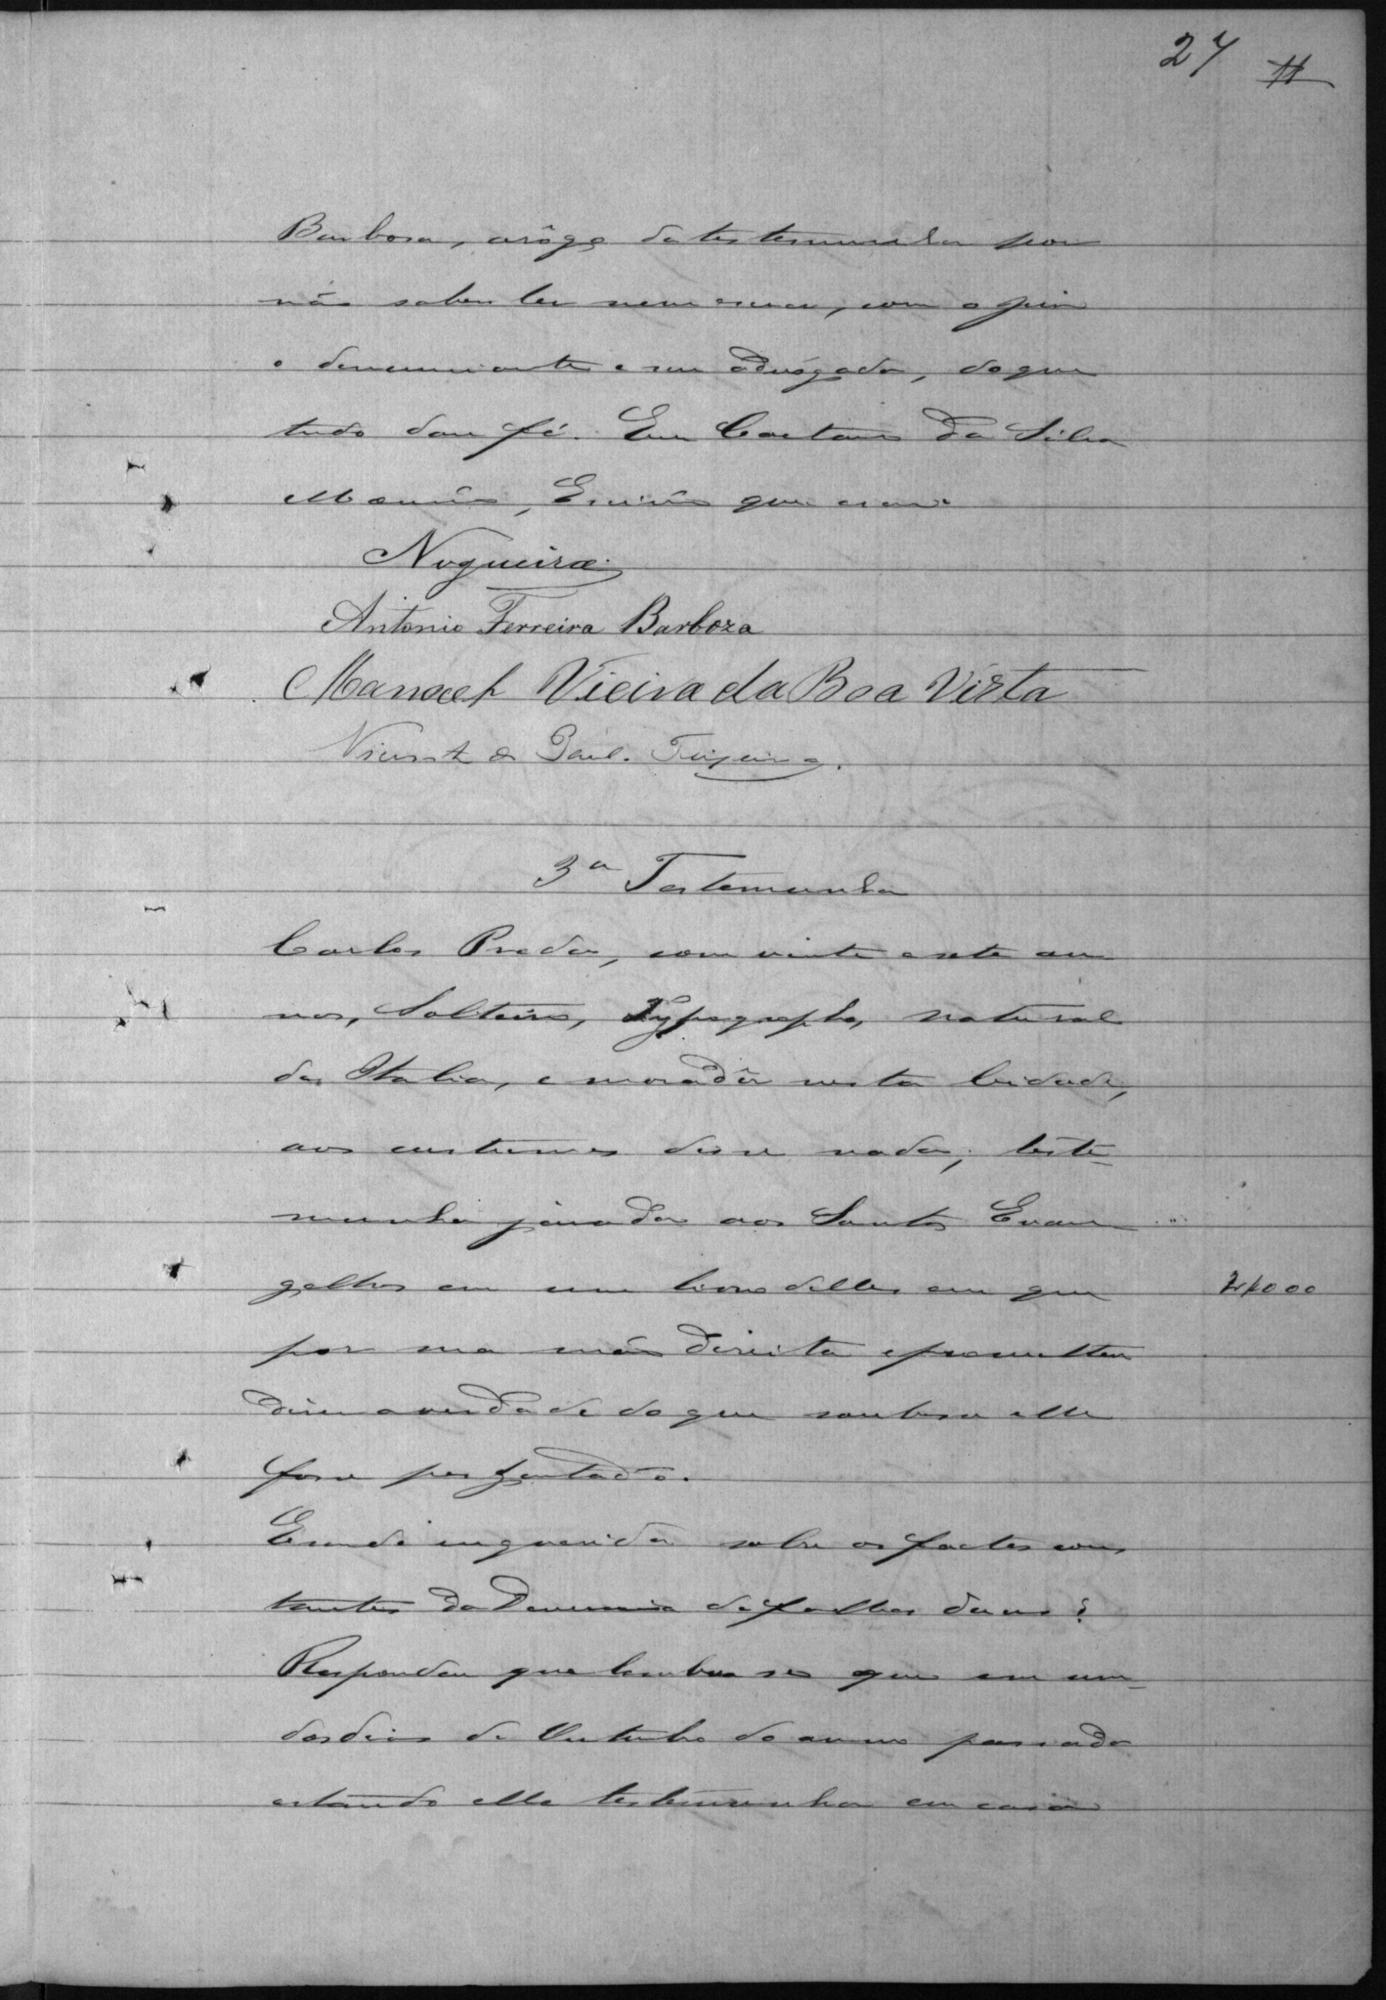 27
Barbosa, arôgo da testemunha por
não saber ler nem escrever, com o juiz
o denunciante e seu advogado, do que
tudo dou fé. Eu Caetano da Silva
Escrivão que escrevi
Nogueira
Antonio Ferreira Barboza
Manoel Vieira da Boa Vista
Vicente de Paul. Teixeira.
3a Testemunha
Carlos Prada, com vinte e sete an
nos, Solteiro, Typographo, natural
da Italia, e morador nesta Cidade,
aos custumes disse nada; teste-
munha jurada aos Santos Evan
gelhos em um livro delles em que
2$000
por sua mão direita e prometteu
dizer a verdade do que soubesse e lhe
fosse perguntado.
E sendo inquerida sobre os factos cons
tantes da Denuncia de folhas duas?
Respondeu que lembra-se que em um
dos dias de Outubro do anno passado
estando elle testemunha em casa